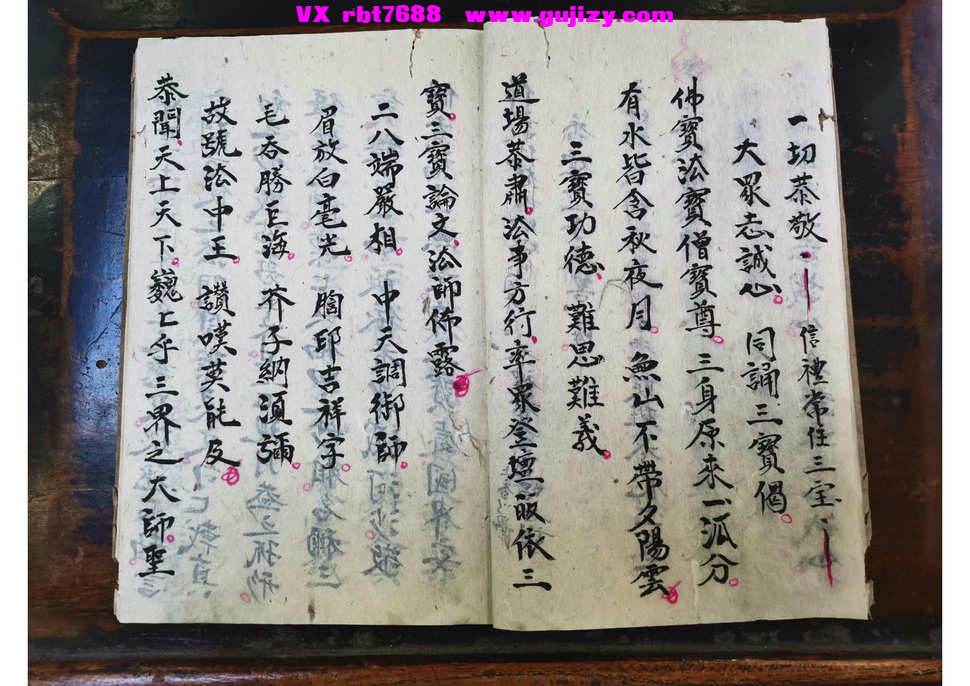 VX rbt7688 www.gujizy.com
一切恭敬 信禮常住三宝
大眾志誠心 同誦三寶偈
佛寶法寶僧寶尊 三身原來一派分
有水皆含秋夜月 無山不帶夕陽雲
三寶功德 難思難義
道場恭肅法事方行率眾登壇皈依三
寶三寶論文法師佈露
二八端嚴相 中天調御師
眉放白毫光 胸印吉祥字
毛吞勝巨海 芥子納須彌
故號法中王 讚嘆莫能及
恭聞天上天下巍〻乎三界之大師聖